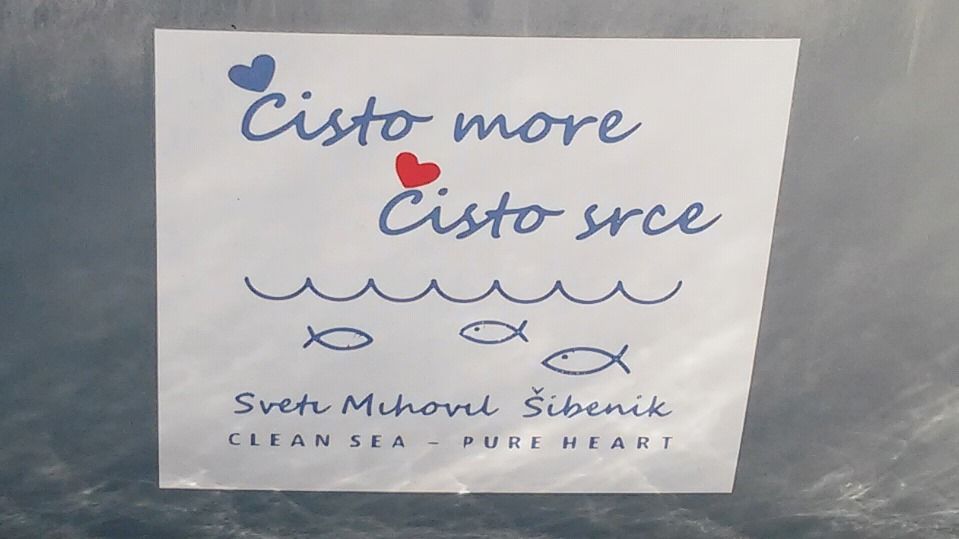 Čisto more
Čisto srce
Sveti Mihovil Šibenik
CLEAN SEA – PURE HEART